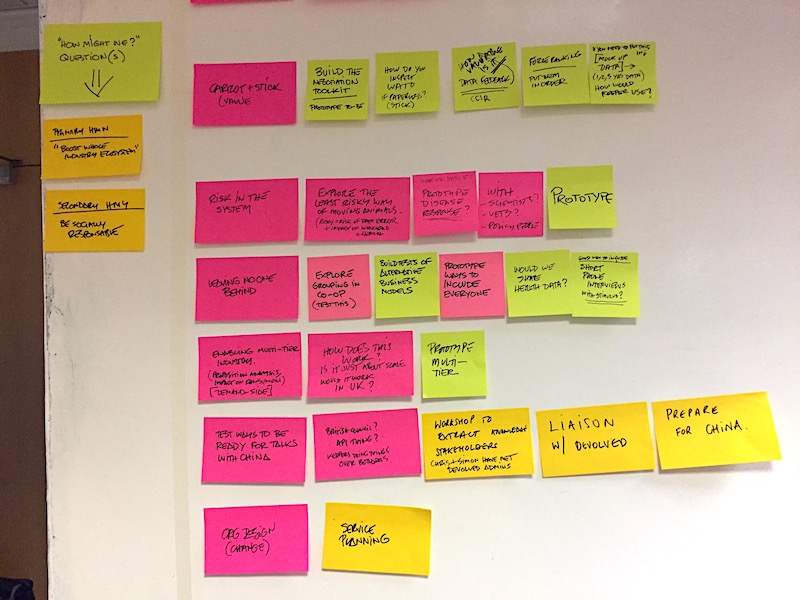 "HOW MIGHT WE?"
QUESTION(S)
PRIMARY HMW
"BOOST WHOLE
INDUSTRY ECOSYSTEM"
SECONDARY HMW
BE SOCIALLY
RESPONSABLE
CARROT + STICK
/VALUE
BUILD THE
NEGOTIATION
TOOLKIT
PROTOTYPE TO-BE
HOW DO YOU
INSPECT
IF PAPERLESS?
(STICK)
HOW
VALUABLE
IS IT
DATA FEEDBACK)
FORCE RANKING
PUT THEM
IN ORDER
"YOU NEED TO PUT THIS
[MOCK UP
DATA] →
(1,2,3 YRS DATA)
HOW WOULD
KEEPER USE?
RISK IN THE
SYSTEM
EXPLORE THE
LEAST RISKY WAY
OF MOVING ANIMALS.
PROTOTYPE
DISEASE
RESPONSE?
WITH
- SCIENTISTS?
- VETS?
- POLICY PEOPLE
PROTOTYPE
LEAVING NO ONE
BEHIND
EXPLORE
GROUPING IN
CO-OP
(TEST THIS)
BUILD TESTS OF
ALTERNATIVE
BUSINESS
MODELS
PROTOTYPE
WAYS TO
INCLUDE
EVERYONE
WOULD WE
SHARE
HEALTH DATA?
GOOD WAY TO INCLUDE
SHORT
PHONE
INTERVIEWS
WITH STIMULUS?
ENABLING MULTI-TIER
INDUSTRY.
(PROPOSITION ANALYSIS,
IMPACT ON CONSUMERS)
[DEMAND-SIDE]
HOW DOES THIS
WORK?
IS IT JUST ABOUT SCALE
WOULD IT WORK
IN UK?
PROTOTYPE
MULTI-
TIER
TEST WAYS TO BE
READY FOR TALKS
WITH CHINA
BRITISH COUNCIL?
API THING?
KEEPERS DOING THINGS
OVER BORDERS
WORKSHOP TO
EXTRACT KNOWLEDGE
STAKEHOLDERS
CHRIS + SIMON HAVE MET
DEVOLVED ADMINS
LIAISON
W/ DEVOLVED
PREPARE
FOR CHINA.
ORG DESIGN
(CHANGE)
SERVICE
PLANNING